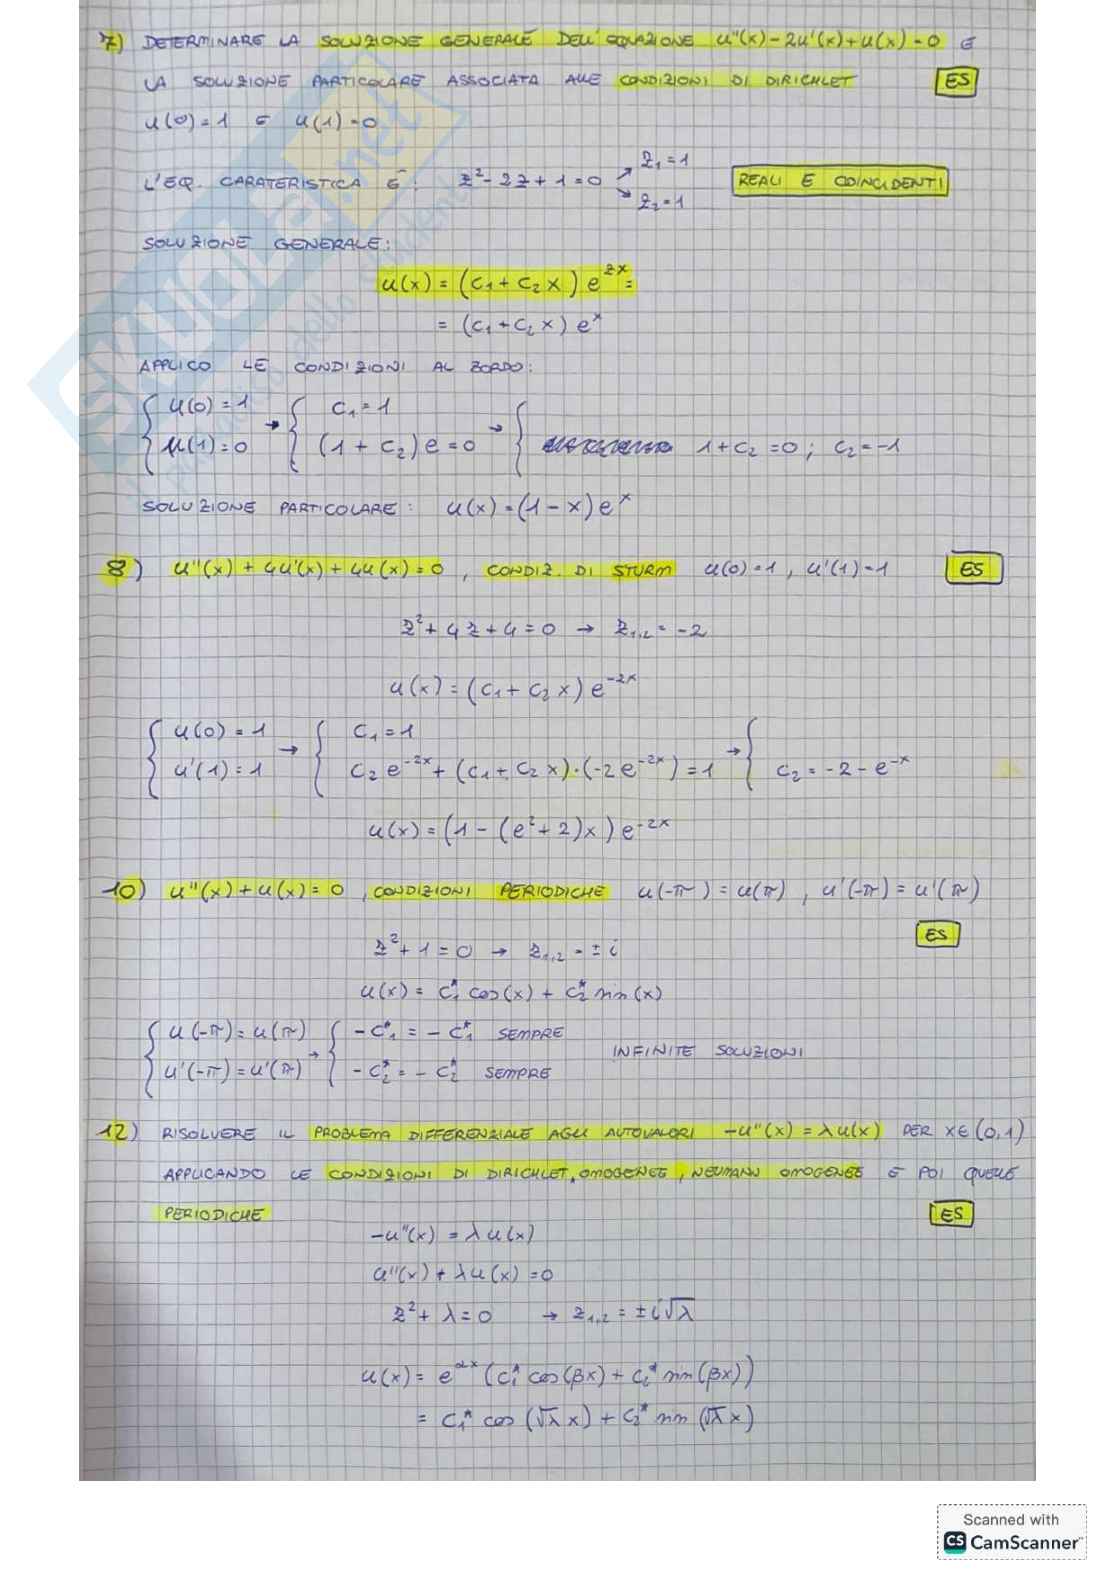 7) DETERMINARE LA SOLUZIONE GENERALE DELL'EQUAZIONE u''(x) - 2u'(x) + u(x) = 0 E
LA SOLUZIONE PARTICOLARE ASSOCIATA ALLE CONDIZIONI DI DIRICHLET
ES
u(0) = 1 E u(1) = 0
L'EQ. CARATERISTICA È: z² - 2z + 1 = 0
z₁ = 1
z₂ = 1
REALI E COINCIDENTI
SOLUZIONE GENERALE:
u(x) = (c₁ + c₂ x) e^{zx} =
= (c₁ + c₂ x) e^x
APPLICO LE CONDIZIONI AL BORDO:
{ u(0) = 1 → { c₁ = 1 → {
u(1) = 0 (1 + c₂) e = 0 1 + c₂ = 0 ; c₂ = -1
SOLUZIONE PARTICOLARE: u(x) = (1 - x) e^x
8) u''(x) + 4u'(x) + 4u(x) = 0 , CONDIZ. DI STURM u(0) = 1 , u'(1) = 1
ES
z² + 4z + 4 = 0 → z₁,₂ = -2
u(x) = (c₁ + c₂ x) e^{-2x}
{ u(0) = 1 → { c₁ = 1 → {
u'(1) = 1 c₂ e^{-2x} + (c₁ + c₂ x)·(-2e^{-2x}) = 1 c₂ = -2 - e^{-x}
u(x) = (1 - (e² + 2)x) e^{-2x}
10) u''(x) + u(x) = 0 , CONDIZIONI PERIODICHE u(-π) = u(π) , u'(-π) = u'(π)
ES
z² + 1 = 0 → z₁,₂ = ± i
u(x) = c₁* cos(x) + c₂* sin(x)
{ u(-π) = u(π) → { -c₁* = -c₁* SEMPRE
u'(-π) = u'(π) -c₂* = -c₂* SEMPRE
INFINITE SOLUZIONI
12) RISOLVERE IL PROBLEMA DIFFERENZIALE AGLI AUTOVALORI -u''(x) = λu(x) PER x∈(0,1)
APPLICANDO LE CONDIZIONI DI DIRICHLET, OMOGENEE, NEUMANN OMOGENEE E POI QUELLE
PERIODICHE
ES
-u''(x) = λu(x)
u''(x) + λu(x) = 0
z² + λ = 0 → z₁,₂ = ± i√λ
u(x) = e^{αx} (c₁* cos(βx) + c₂* sin(βx))
= c₁* cos(√λ x) + c₂* sin(√λ x)
Scanned with
CS CamScanner